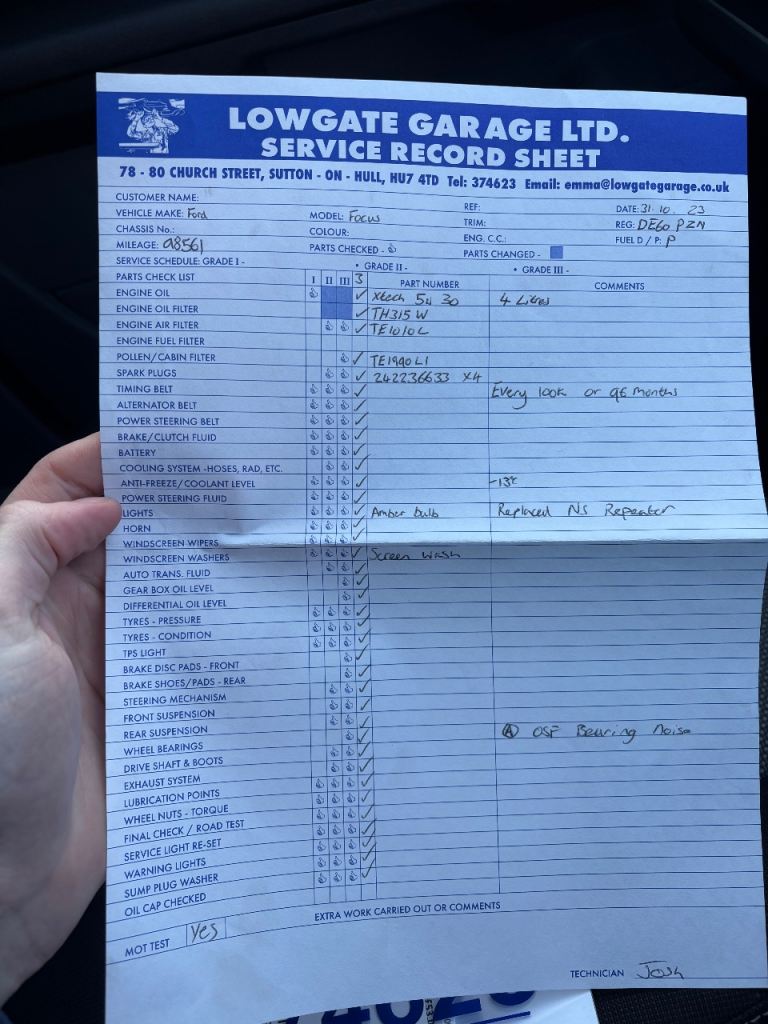 LOWGATE GARAGE LTD.
SERVICE RECORD SHEET
78 - 80 CHURCH STREET, SUTTON - ON - HULL, HU7 4TD Tel: 374623 Email: emma@lowgategarage.co.uk
CUSTOMER NAME: REF: DATE: 31. 10. 23
VEHICLE MAKE: Ford MODEL: Focus TRIM: REG: DE60 PZN
CHASSIS No.: COLOUR: ENG. C.C.: FUEL D / P: P
MILEAGE: 98561 PARTS CHECKED - PARTS CHANGED -
SERVICE SCHEDULE: GRADE I - • GRADE II - • GRADE III -
PARTS CHECK LIST I II III 3 PART NUMBER COMMENTS
ENGINE OIL ✓ Xtech 5w 30 4 Litres
ENGINE OIL FILTER ✓ TH315W
ENGINE AIR FILTER ✓ TE1010C
ENGINE FUEL FILTER
POLLEN/CABIN FILTER ✓ TE1990L1
SPARK PLUGS ✓ 242236633 x4
TIMING BELT ✓ Every 100k or 96 months
ALTERNATOR BELT ✓
POWER STEERING BELT ✓
BRAKE/CLUTCH FLUID ✓
BATTERY ✓
COOLING SYSTEM -HOSES, RAD, ETC. ✓
ANTI-FREEZE/COOLANT LEVEL ✓ -13°c
POWER STEERING FLUID ✓
LIGHTS ✓ Amber bulb Replaced NS Repeater
HORN ✓
WINDSCREEN WIPERS ✓
WINDSCREEN WASHERS ✓ Screen Wash
AUTO TRANS. FLUID ✓
GEAR BOX OIL LEVEL ✓
DIFFERENTIAL OIL LEVEL ✓
TYRES - PRESSURE ✓
TYRES - CONDITION ✓
TPS LIGHT ✓
BRAKE DISC PADS - FRONT ✓
BRAKE SHOES/PADS - REAR ✓
STEERING MECHANISM ✓
FRONT SUSPENSION ✓
REAR SUSPENSION ✓
WHEEL BEARINGS ✓ Ⓐ OSF Bearing Noise
DRIVE SHAFT & BOOTS ✓
EXHAUST SYSTEM ✓
LUBRICATION POINTS ✓
WHEEL NUTS - TORQUE ✓
FINAL CHECK / ROAD TEST ✓
SERVICE LIGHT RE-SET ✓
WARNING LIGHTS ✓
SUMP PLUG WASHER ✓
OIL CAP CHECKED ✓
EXTRA WORK CARRIED OUT OR COMMENTS
MOT TEST Yes
TECHNICIAN Josh